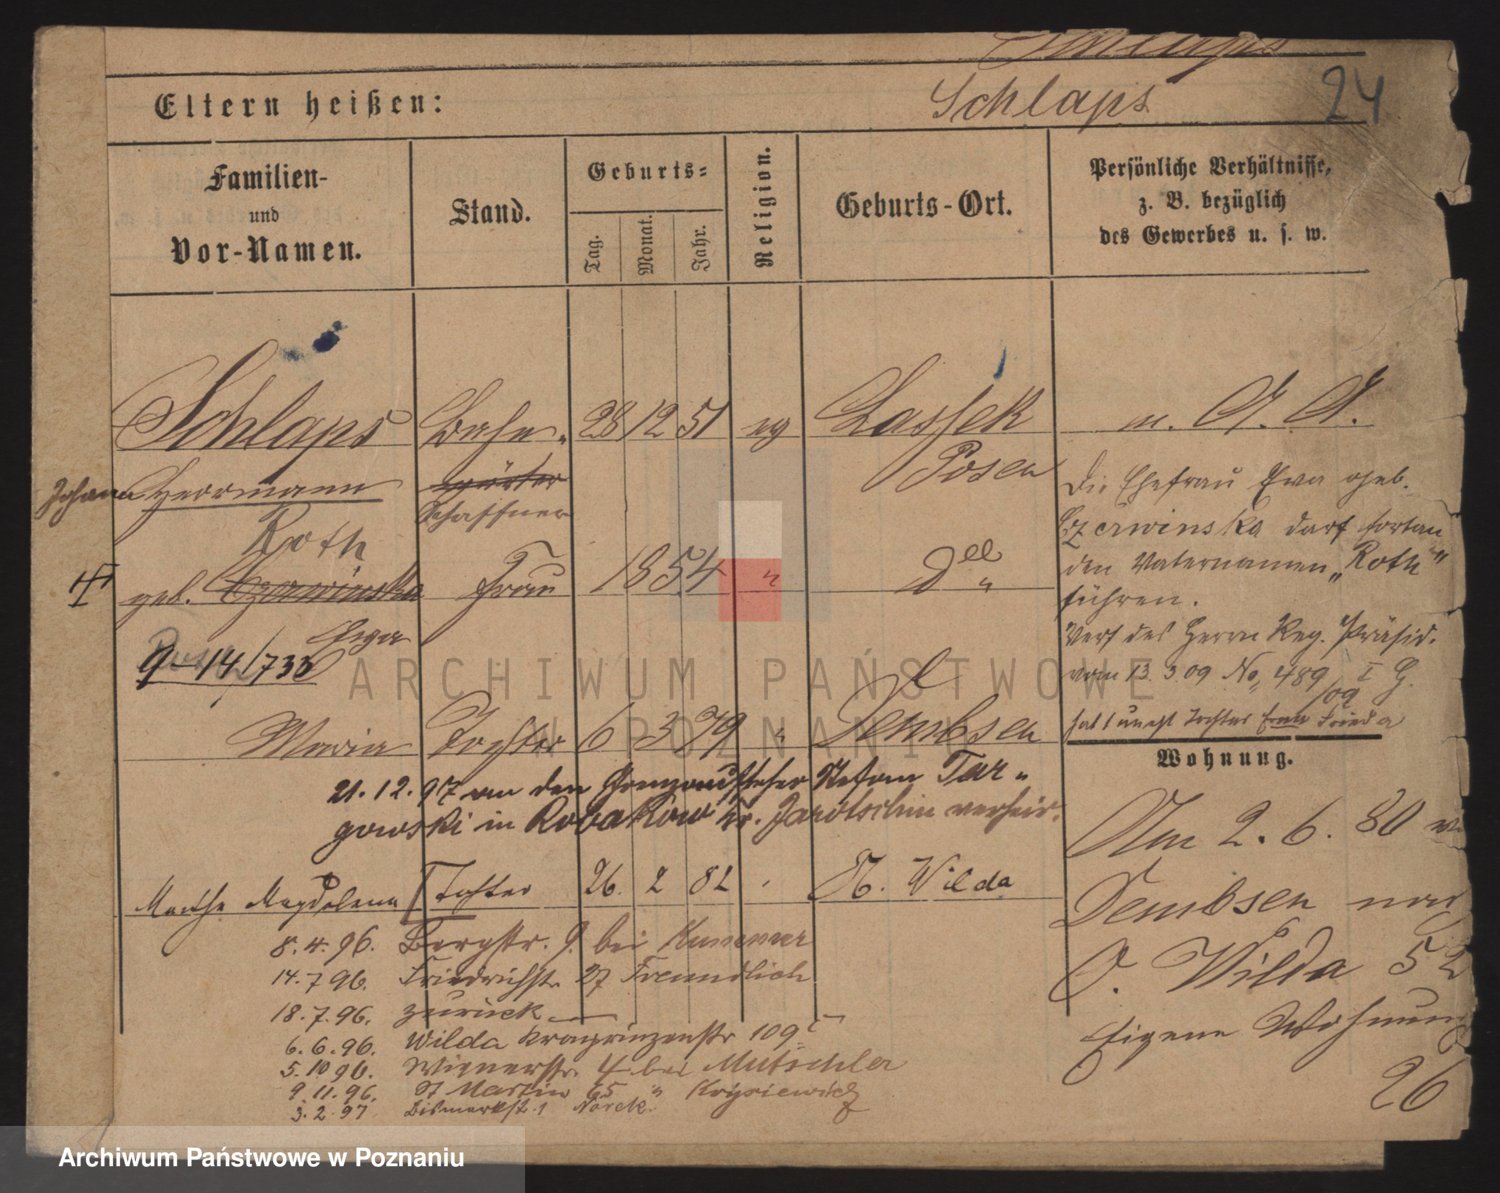 Schlaps
Eltern heißen:
Schlaps
24
Familien-
und
Vor-Namen.
Stand.
Geburts-
Tag.
Monat.
Jahr.
Religion.
Geburts-Ort.
Persönliche Verhältnisse,
z. B. bezüglich
des Gewerbes u. s. w.
Schlaps Bahn- 28 12 51 Lassek
Posen
Johann Herrmann wärter
Schaffner
Roth
geb. Czerwinska Frau 1854 "
Ewa
9-14/733
Maria Tochter 6 3 79 " Dembsen
21.12.97 an den Grenzaufseher Stefan Tar-
gowski in Robakow Kr. Jarotschin verheir.
Martha Magdalena Tochter 26. 2 82 O. Wilda
8.4.96. Bergstr. 9. bei
14.7 96. Friedrichstr. 27 Freundlich
18.7.96. zurück
6.6.96. Wilda Kronprinzenstr 109
5.10 96. Wienerstr. 4. bei Mutschler
9.11.96. St Martin 65 " Krysiewicz
3.2.97 Bismarckst. 1
Die Ehefrau Ewa geb.
Czerwinska darf fortan
den Vaternamen „Roth"
führen.
Verf des Herrn Reg. Präsid.
vom 13.3.09 No. 489/09 I G.
hat 1 unehl Tochter Frieda
Wohnung.
Am 2.6.80 v
Dembsen nach
O. Wilda 52
Eigene Wohnung
26
ARCHIWUM PAŃSTWOWE
W POZNANIU
Archiwum Państwowe w Poznaniu